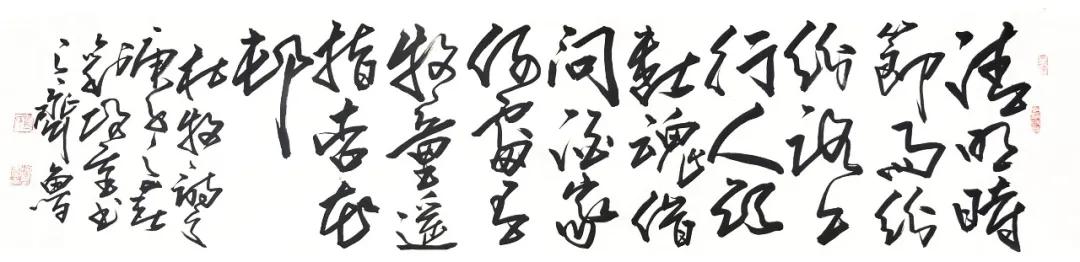 清明時
節雨紛
紛路上
行人欲
斷魂借
問酒家
何處有
牧童遙
指杏花
邨
杜牧詩
庚子之春
書
齊魯